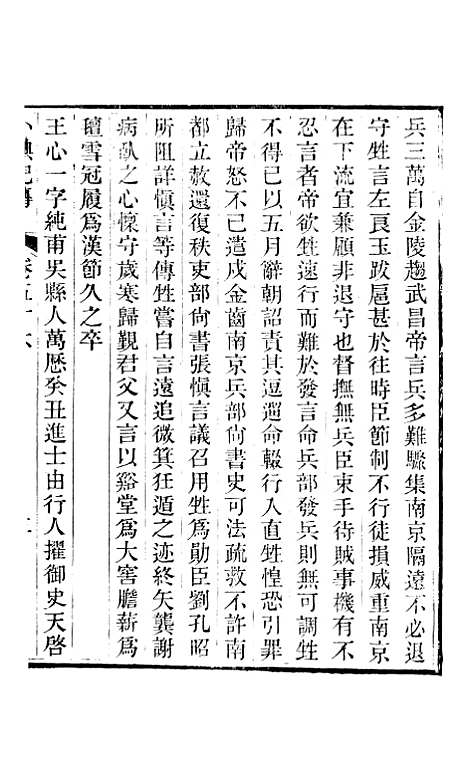 兵三萬自金陵趨武昌帝言兵多難驟集南京隔遠不必退
守甡言左良玉跋扈甚於往時臣節制不行徒損威重南京
在下流宜兼顧非退守也督撫無兵臣束手待賊事機有不
忍言者帝欲甡速行而難於發言命兵部發兵則無可調甡
不得已以五月辭朝詔責其逗遛命輟行入直甡惶恐引罪
歸帝怒不已遣戍金齒南京兵部尚書史可法疏救不許南
都立赦還復秩吏部尚書張慎言議召用甡爲勛臣劉孔昭
所阻詳慎言等傳甡嘗自言遠追微箕狂遁之迹終矢龔謝
病臥之心懷守歲寒歸覲君父又言以谿堂爲大窖膽薪爲
羶雪冠履爲漢節久之卒
王心一字純甫吳縣人萬厯癸丑進士由行人擢御史天啓